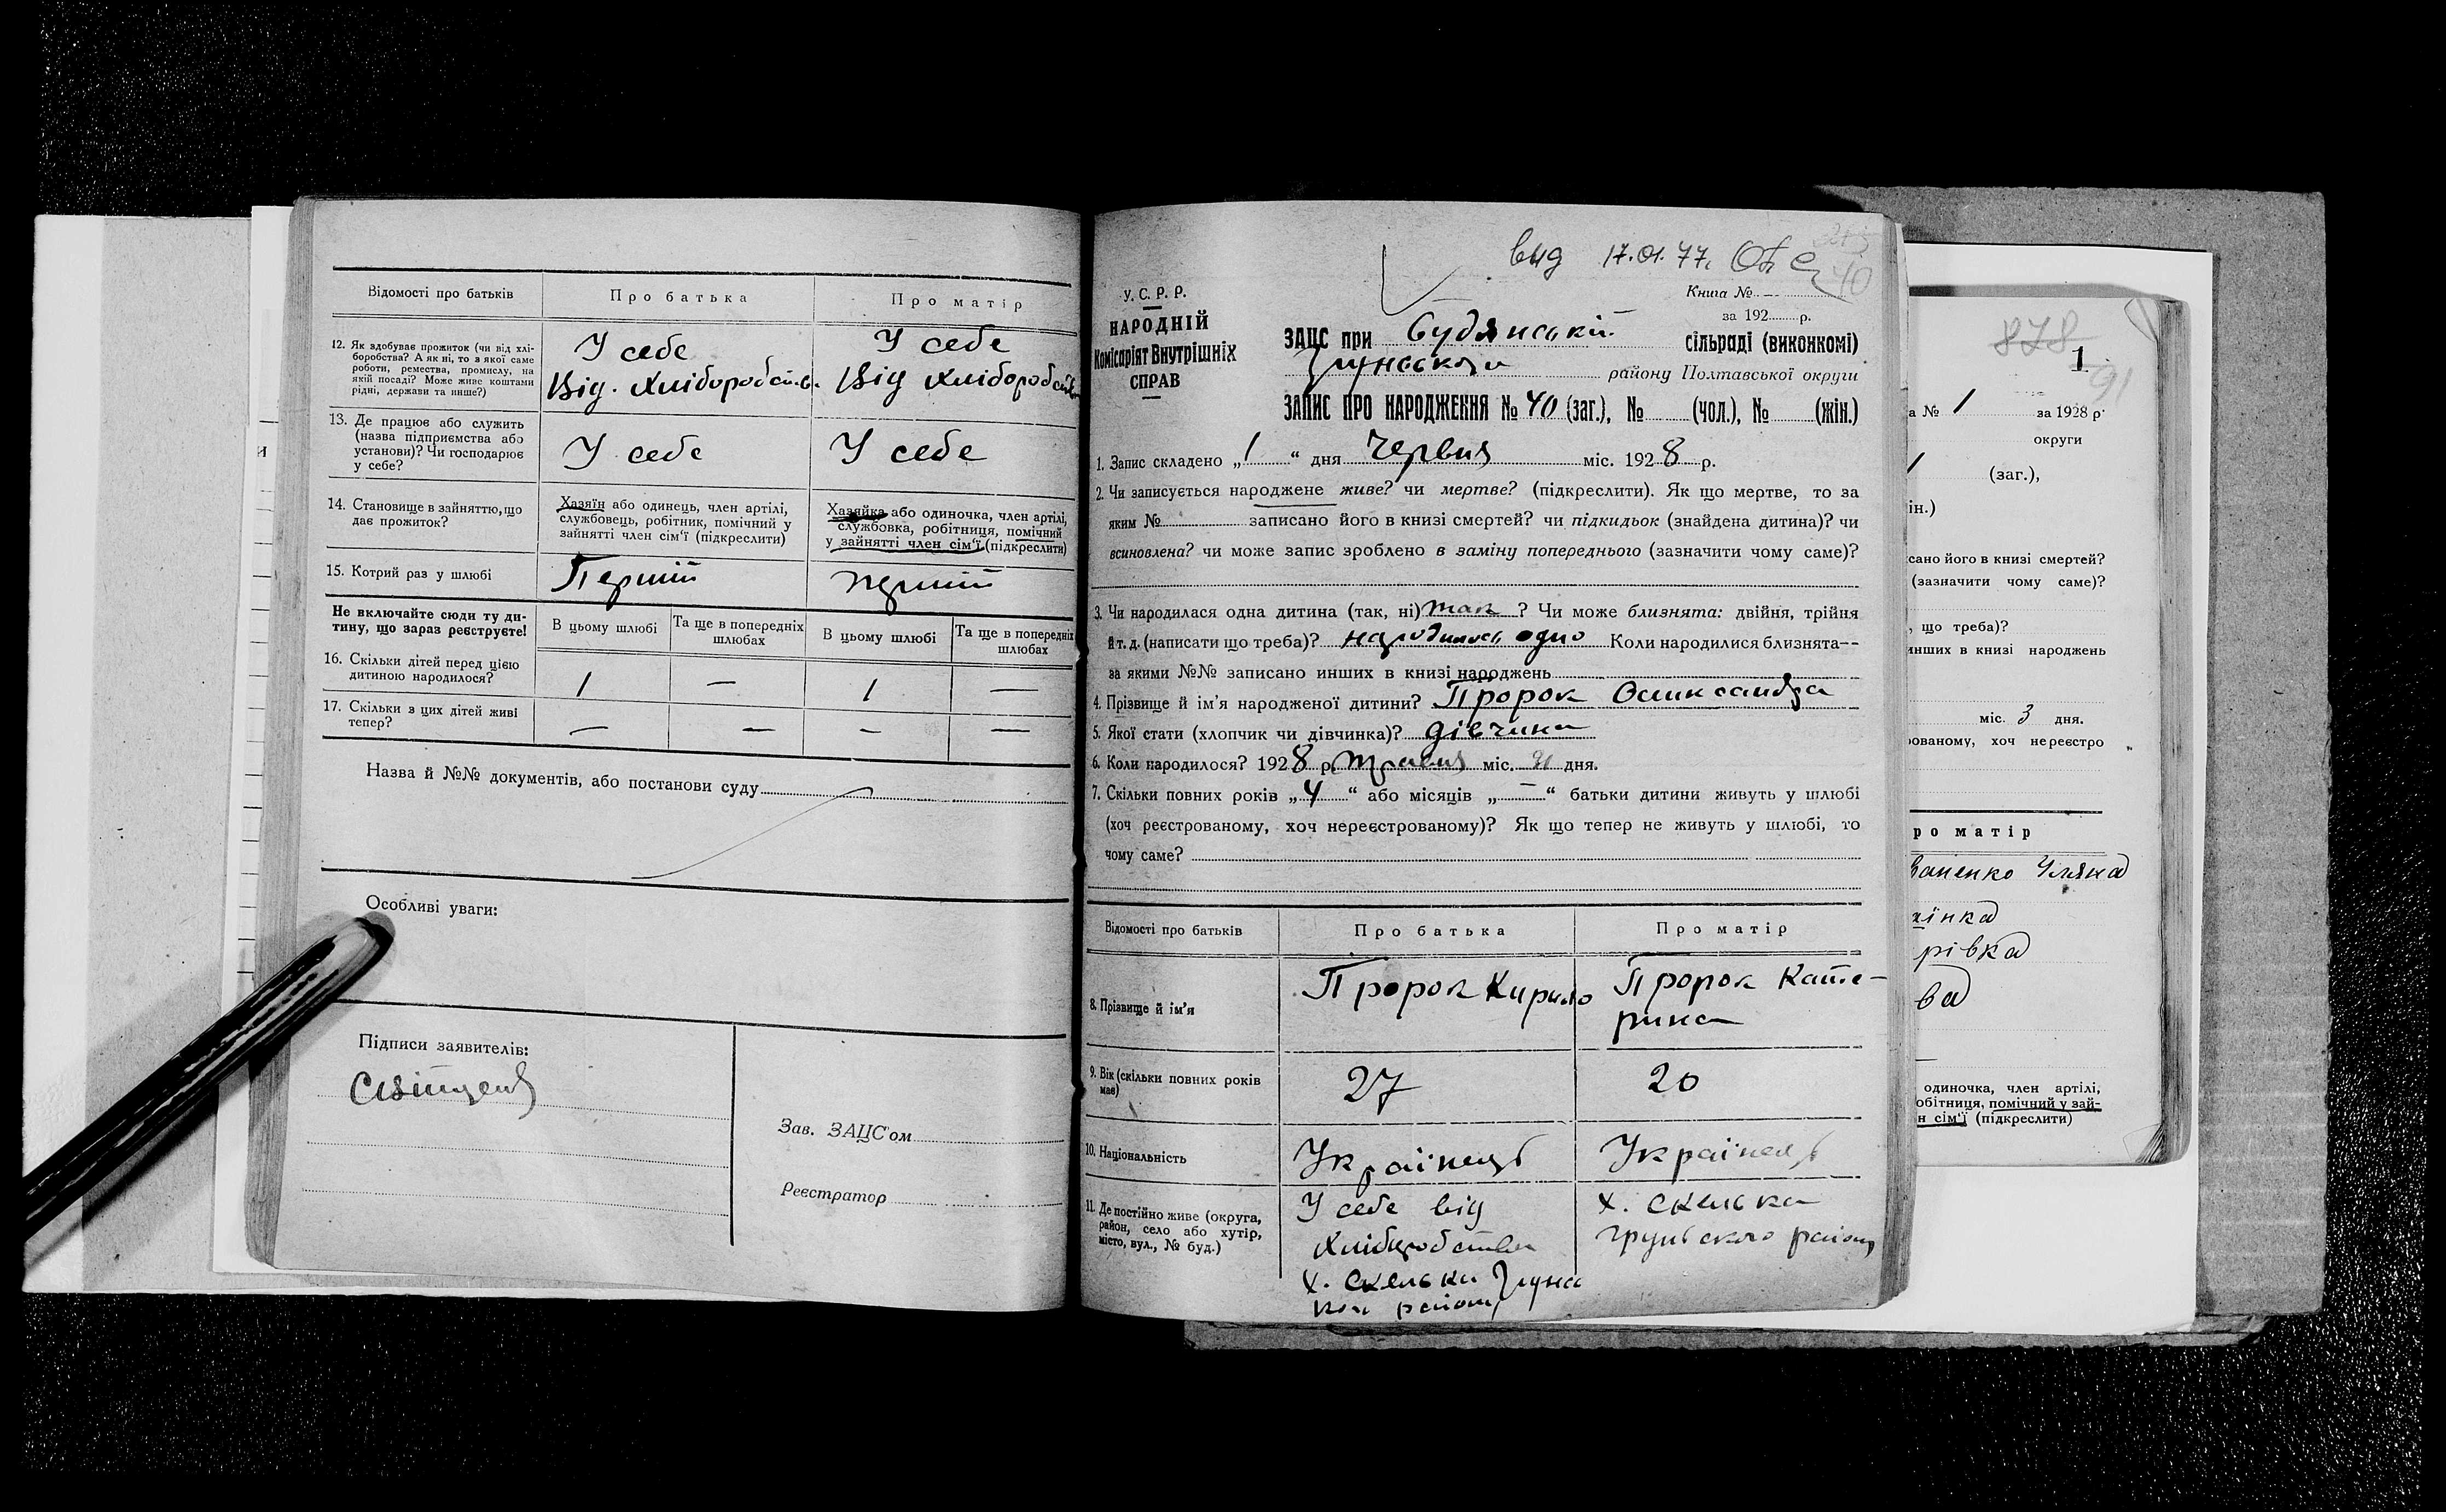 Відомості про батьків
Про батька
Про матір
12. Як здобуває прожиток (чи від хлі-
боробства? А як ні, то з якої саме
роботи, ремества, промислу, на
якій посаді? Може живе коштами
рідні, держави та инше?)
У себе
Від. Хліборобств.
У себе
Від Хліборобств
13. Де працює або служить
(назва підприємства або
установи)? Чи господарює
у себе?
У себе
У себе
14. Становище в зайняттю, що
дає прожиток?
Хазяїн або одинець, член артілі,
службовець, робітник, помічний у
зайнятті член сім'ї (підкреслити)
Хазяйка або одиночка, член артілі,
службовка, робітниця, помічний
у зайнятті член сім'ї (підкреслити)
15. Котрий раз у шлюбі
Перший
перший
Не включайте сюди ту ди-
тину, що зараз реєструєте!
В цьому шлюбі
Та ще в попередніх
шлюбах
В цьому шлюбі
Та ще в попередніх
шлюбах
16. Скільки дітей перед цією
дитиною народилося?
1 — 1 —
17. Скільки з цих дітей живі
тепер?
— — — —
Назва й №№ документів, або постанови суду
Особливі уваги:
Підписи заявителів:
Зав. ЗАЦС'ом
Реєстратор
вид 17.01.77.
40
У. С. Р. Р.
НАРОДНІЙ
Комісаріят Внутрішніх
СПРАВ
Книга № —
за 192 р.
ЗАЦС при Будянській сільраді (виконкомі)
Грунського району Полтавської округи
ЗАПИС ПРО НАРОДЖЕННЯ № 40 (заг.), № (чол.), № (жін.)
1. Запис складено „1“ дня Червня міс. 1928 р.
2. Чи записується народжене живе? чи мертве? (підкреслити). Як що мертве, то за
яким № записано його в книзі смертей? чи підкидьок (знайдена дитина)? чи
всиновлена? чи може запис зроблено в заміну попереднього (зазначити чому саме)?
3. Чи народилася одна дитина (так, ні) так ? Чи може близнята: двійня, трійня
й т. д. (написати що треба)? народилось одно Коли народилися близнята—
за якими №№ записано инших в книзі народжень
4. Прізвище й ім'я народженої дитини? Пророк Олександра
5. Якої стати (хлопчик чи дівчинка)? дівчина
6. Коли народилося? 1928 р. травня міс. 31 дня.
7. Скільки повних років „4“ або місяців „—“ батьки дитини живуть у шлюбі
(хоч реєстрованому, хоч нереєстрованому)? Як що тепер не живуть у шлюбі, то
чому саме?
Відомості про батьків
Про батька
Про матір
8. Прізвище й ім'я
Пророк Кирило
Пророк Кате-
рина
9. Вік (скільки повних років
має)
27
20
10. Національність
Українець
Українець
11. Де постійно живе (округа,
район, село або хутір,
місто, вул., № буд.)
У себе від
Хліборобства
х. Скелька Грунс
кого району
х. Скелька
грунського району
878
1
91
а № 1 за 1928 р.
округи
1 (заг.),
ін.)
сано його в книзі смертей?
(зазначити чому саме)?
, що треба)?
инших в книзі народжень
міс. 3 дня.
ованому, хоч нереєстро
ро матір
ваненко Уляна
аїнка
рівка
ва
одиночка, член артілі,
обітниця, помічний у зай-
н сім'ї (підкреслити)